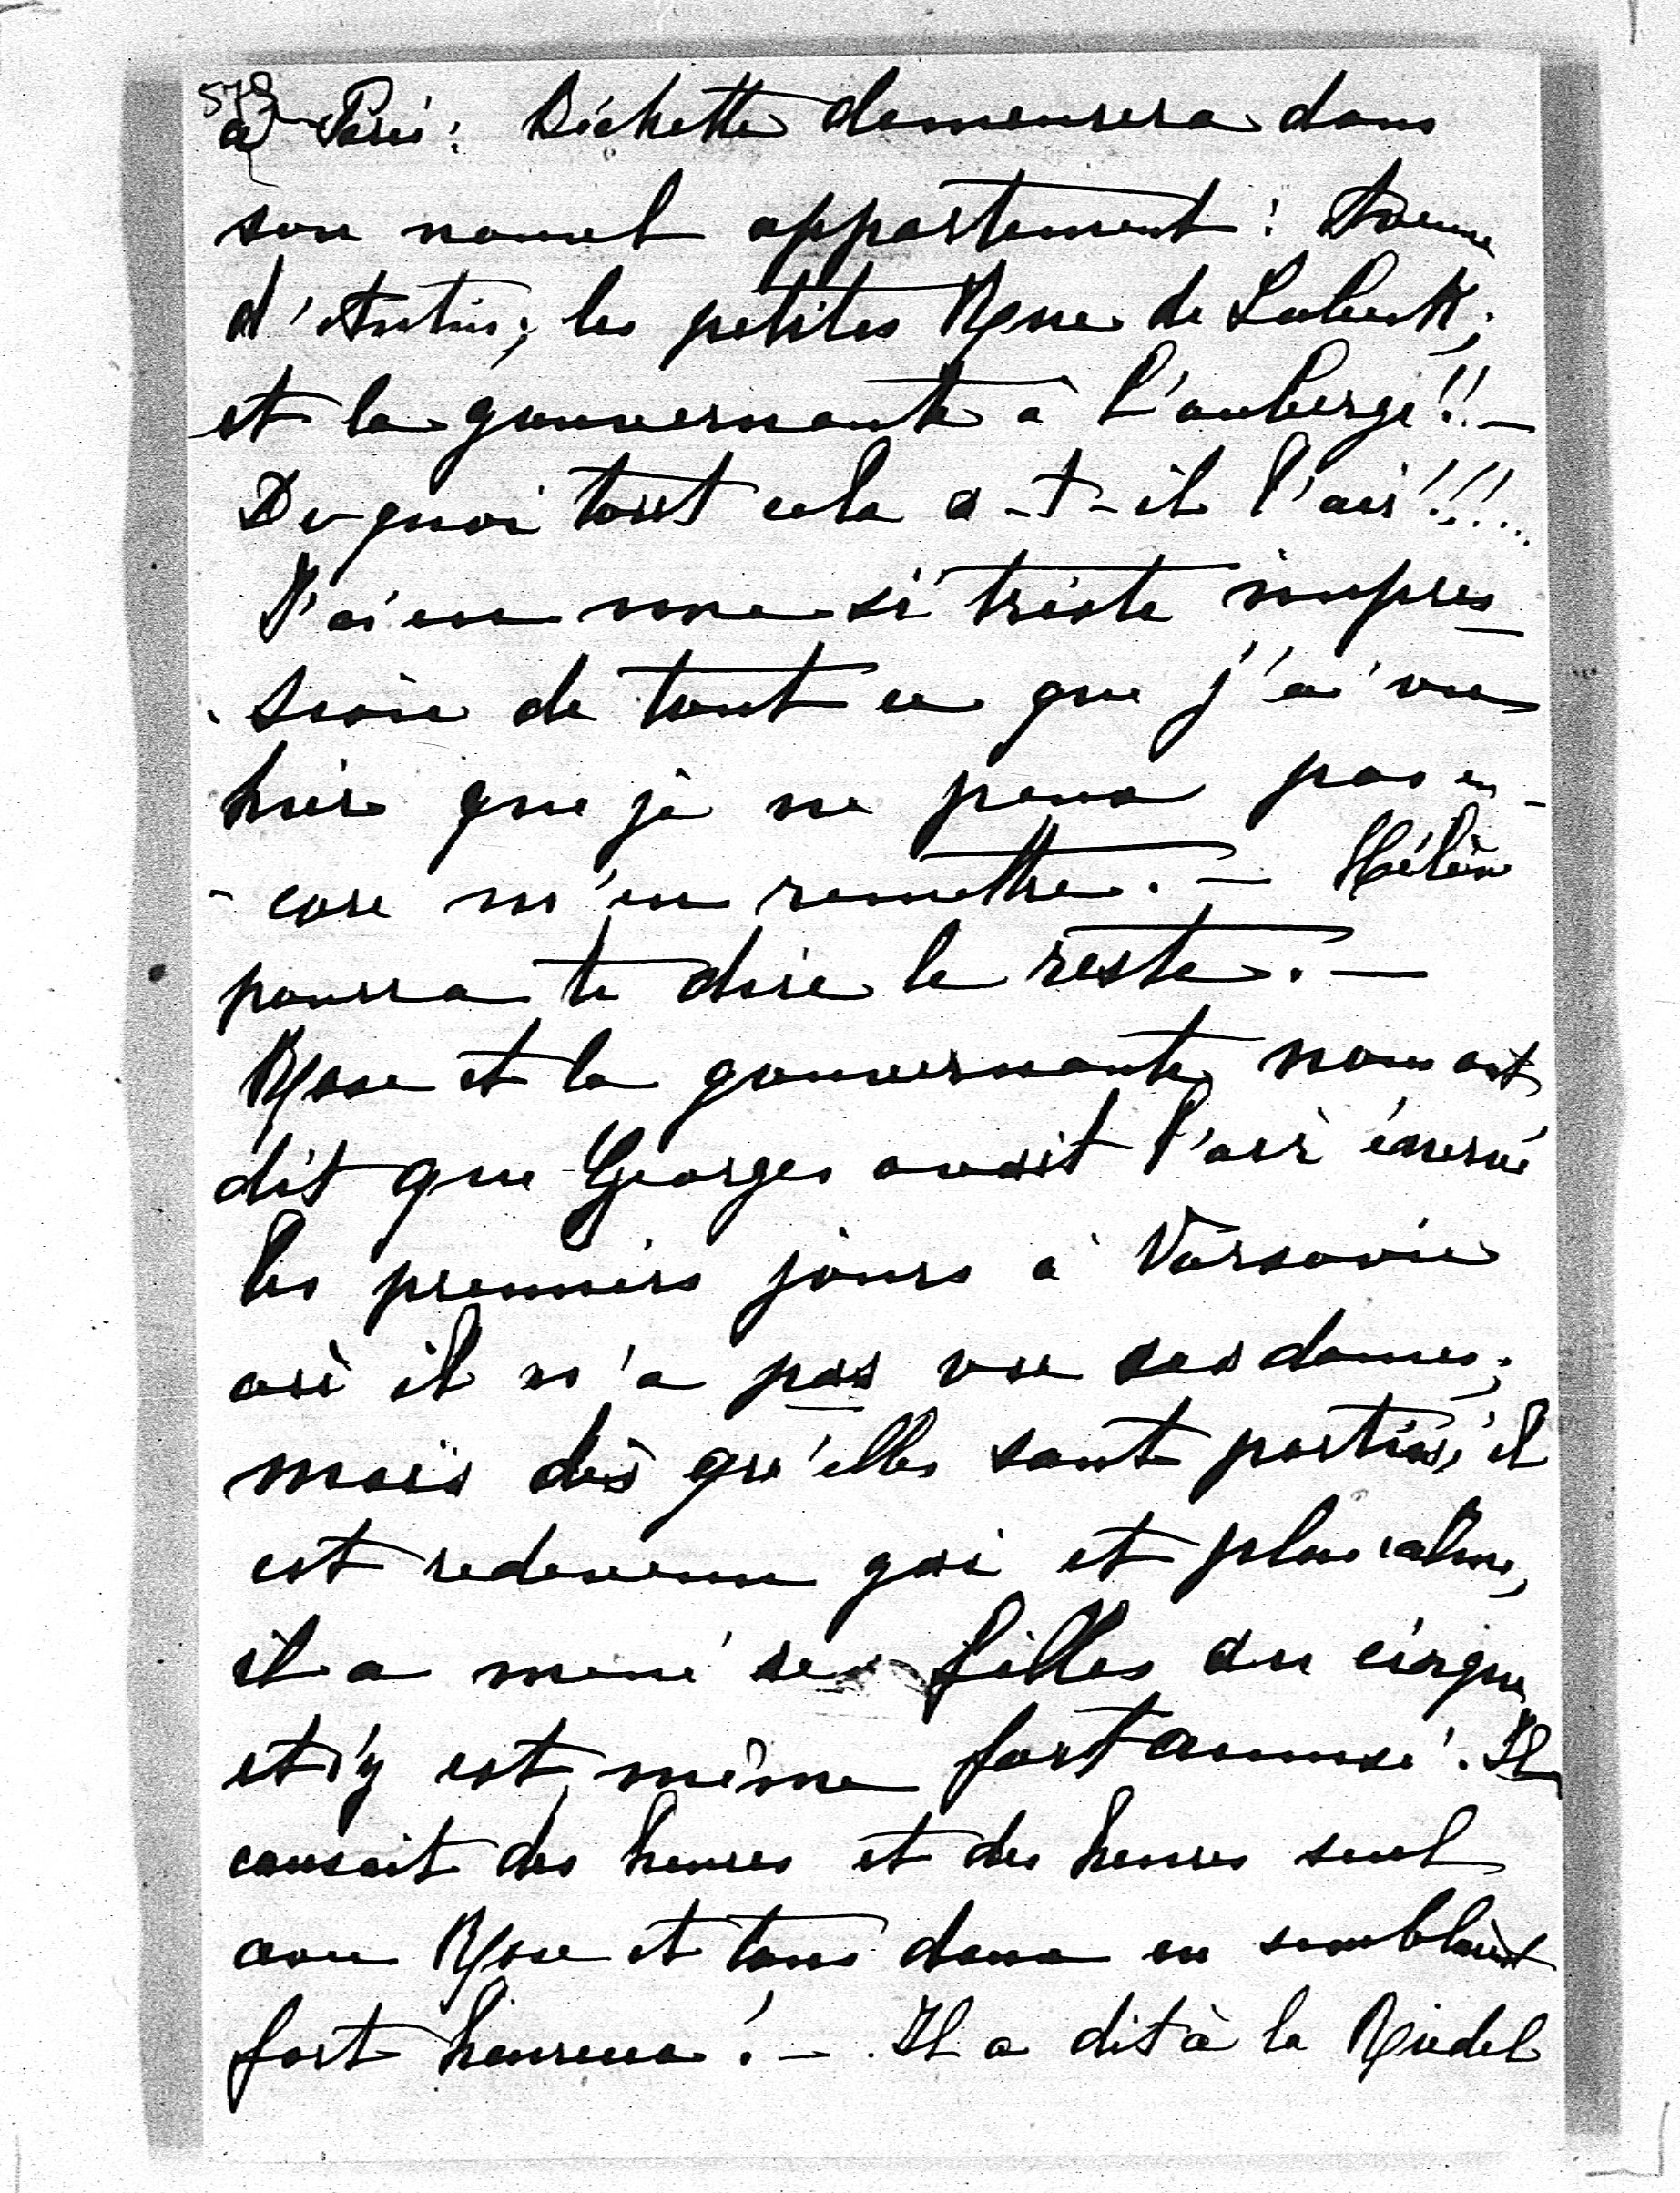 578
à Paris: Bichette demeurera dans
son nouvel appartement: Avenue
d'Antin; les petites Rue de Lubeck;
et la gouvernante à l'auberge!! —
De quoi tout cela a-t-il l'air!!!...
J'ai eu une si triste impres
-sion de tout ce que j'ai vu
hier que je ne peux pas en-
-core m'en remettre. — Hélène
pourra te dire le reste. —
Rose et la gouvernante nous ont
dit que Georges avait l'air énervé
les premiers jours à Varsovie
où il n'a pas vu ses dames;
mais dès qu'elles sont parties, il
est redevenu gai et plus calme,
il a mené ses filles au cirque
et s'y est même fort amusé. Il
causait des heures et des heures seul
avec Rose et tous deux en semblaient
fort heureux! — Il a dit à la Riedel